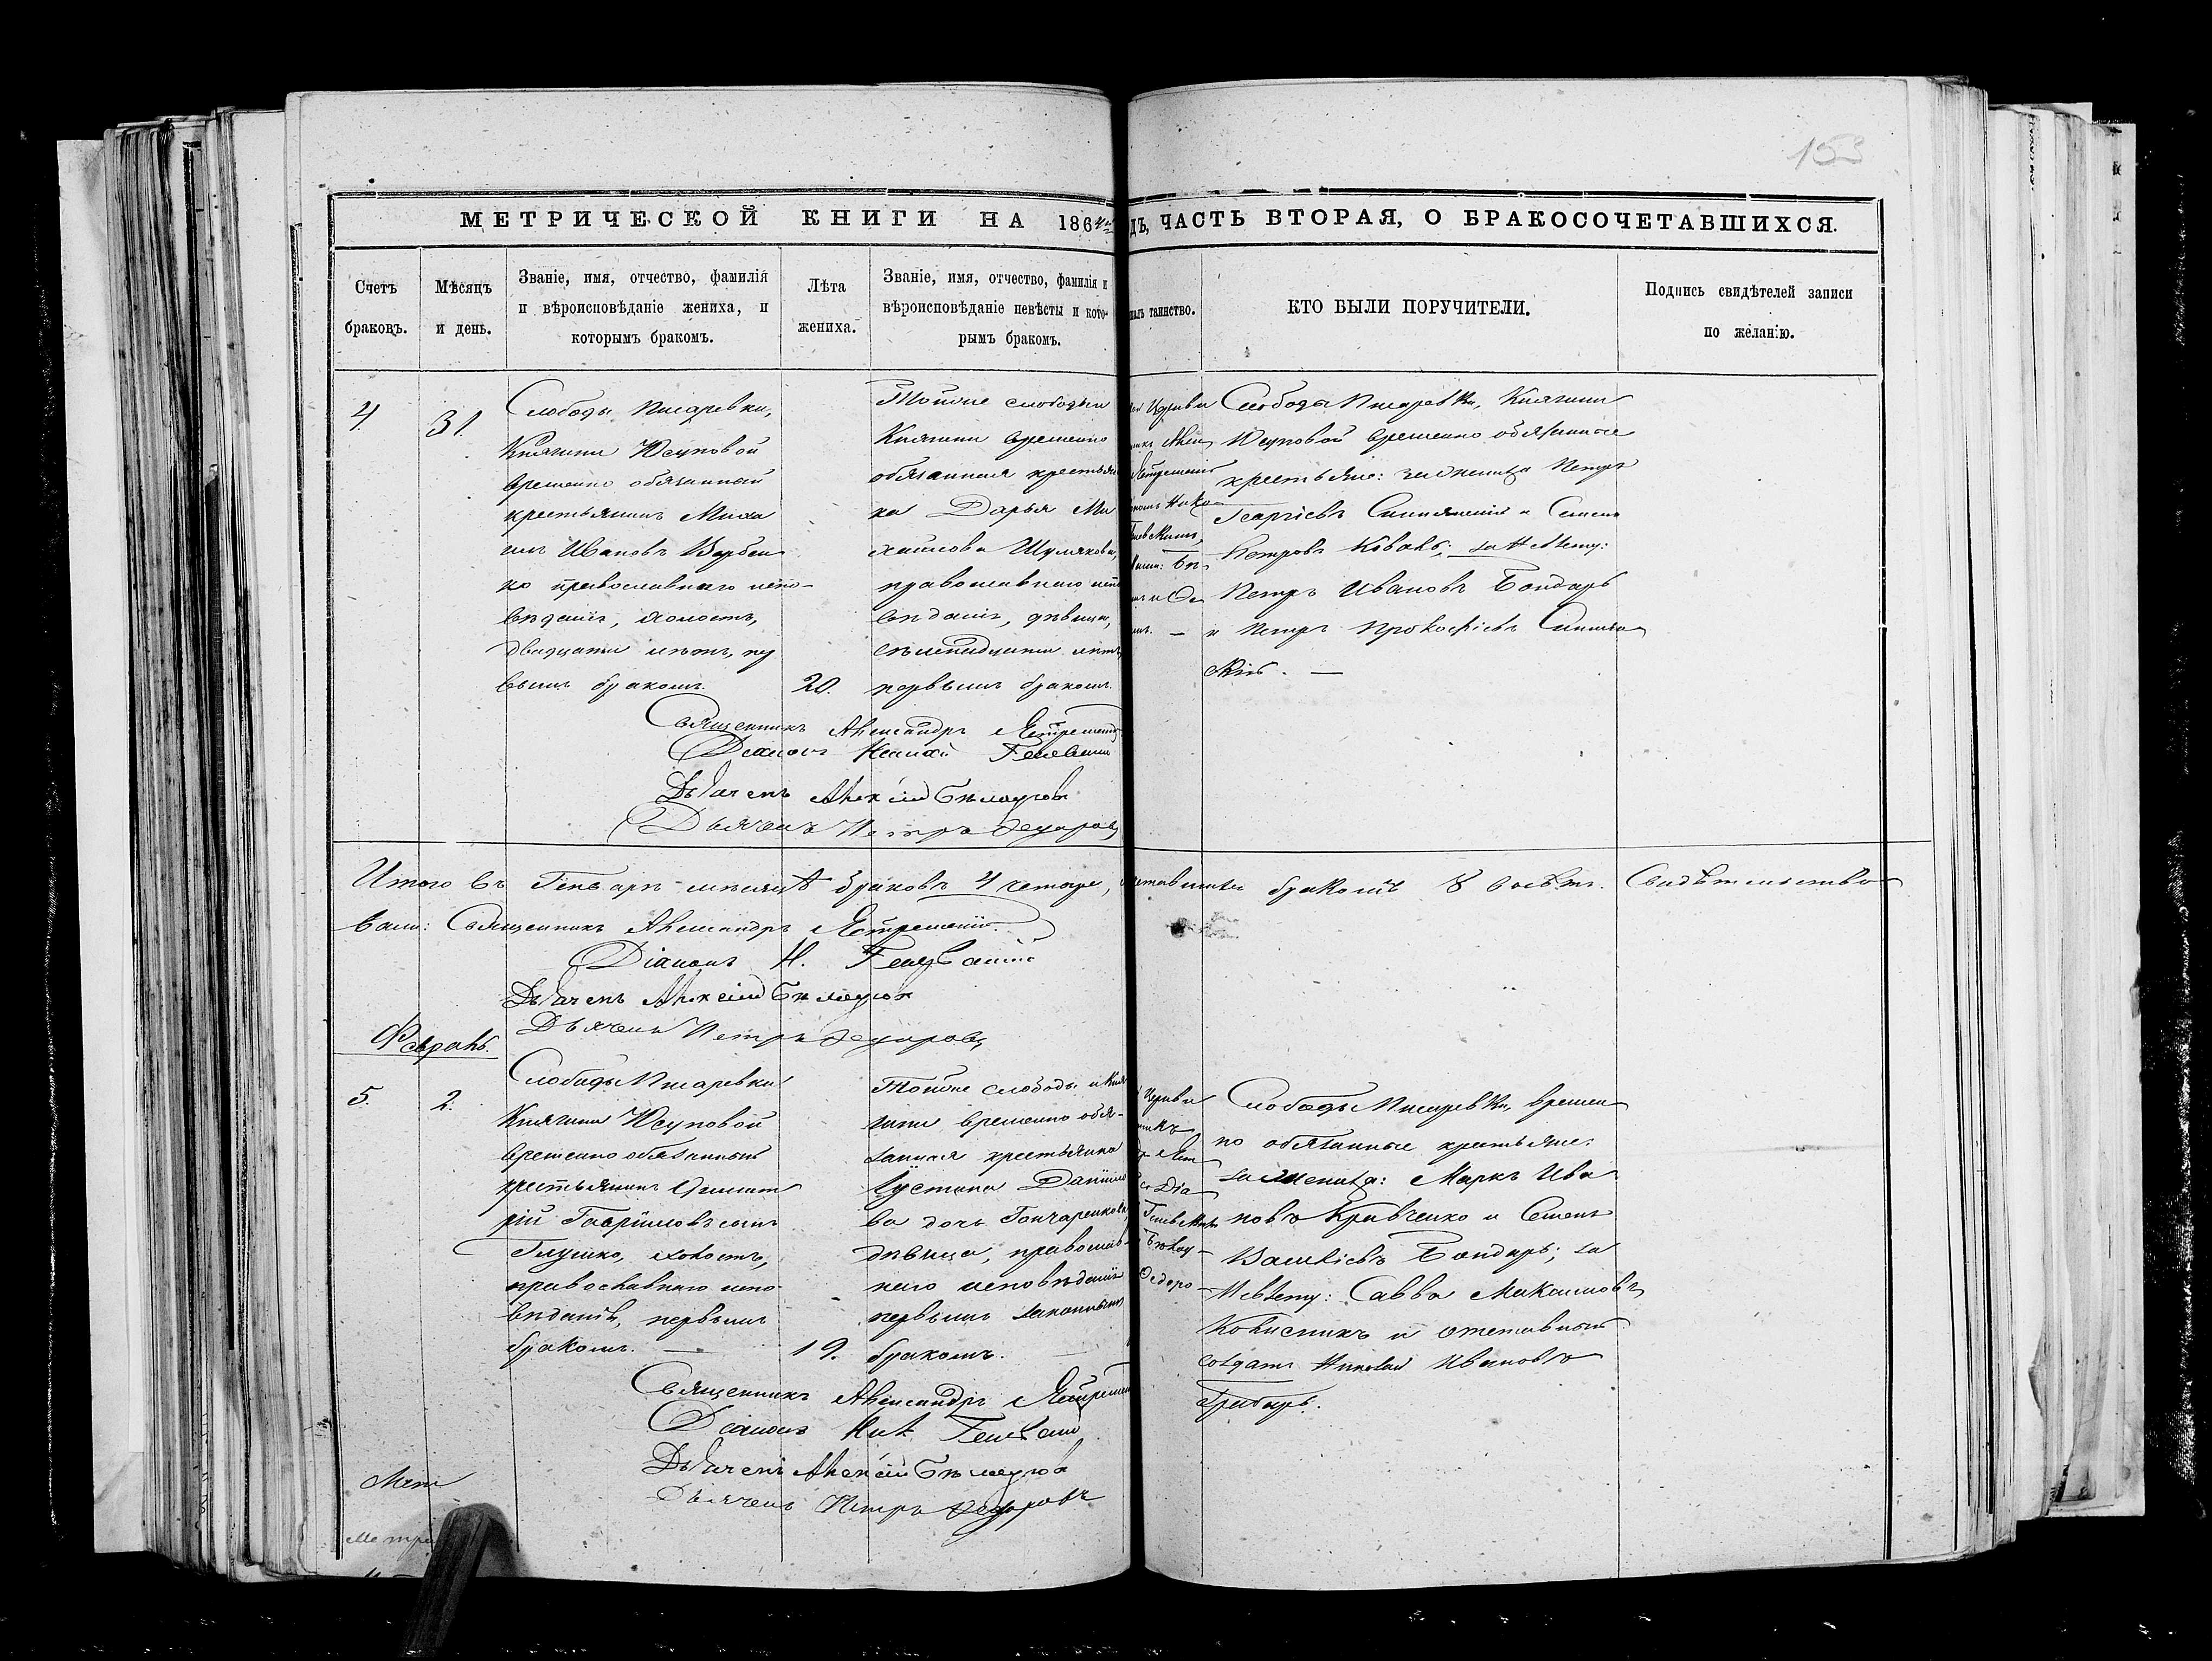 153
МЕТРИЧЕСКОЙ КНИГИ НА 1864
ДЪ, ЧАСТЬ ВТОРАЯ, О БРАКОСОЧЕТАВШИХСЯ.
Счетъ браковъ.
Мѣсяцъ и день.
Званіе, имя, отчество, фамилія
и вѣроисповѣданіе жениха, и
которымъ бракомъ.
Лѣта
жениха.
Званіе, имя, отчество, фамилія и
вѣроисповѣданіе невѣсты и кото-
рымъ бракомъ.
таинство.
КТО БЫЛИ ПОРУЧИТЕЛИ.
Подпись свидѣтелей записи
по желанію.
4. 31.
Слободы Писаревки,
Княгини Юсуповой
временно обязанный
крестьянинъ Миха
илъ Ивановъ Вербен
ко православнаго испо-
вѣданія, холостъ,
двадцати лѣтъ, пер
вымъ бракомъ. 20.
Тойже слободы
Княгини временно
обязанная крестьян
ка Дарья Ми
хайлова Шулякова,
православнаго испо
вѣданія, дѣвица,
семнадцати лѣтъ,
первымъ бракомъ.
Слободы Писаревки, Княгини
Юсуповой временно обязанные
крестьяне: за жениха Петръ
Георгіевъ и Семенъ
Петровъ Коваль; за невѣсту:
Петръ Ивановъ Бондарь
и Петръ Прокофіевъ
скій. —
Священникъ Александръ Ястремскій
Діаконъ Николай
Дьячекъ Алексій
Дьячекъ Петръ Федоровъ
Итого въ Генварѣ мѣсяцѣ браковъ 4 четыре, бракомъ 8 восемь. Свидѣтельство
вали: Священникъ Александръ Ястремскій.
Діаконъ Н.
Дьячекъ Алексій
Дьячекъ Петръ Федоровъ
Февраль.
5. 2.
Слободы Писаревки
Княгини Юсуповой
временно обязанный
крестьянинъ Димит
рій Гавріиловъ сынъ
Глушко, холостъ,
православнаго испо
вѣданія, первымъ
бракомъ. — 19.
Тойже слободы и Кня
гини временно обя-
занная крестьянка
Іустина Даніило
ва дочь Гончаренкова,
дѣвица, православ-
наго исповѣданія
первымъ законнымъ
бракомъ. —
Слободы Писаревки, времен
но обязанные крестьяне:
за жениха: Маркъ Ива
новъ Кравченко и Семенъ
Васильевъ Бондарь; за
невѣсту: Савва Максимовъ
Колисникъ и отставный
солдатъ Николай Ивановъ
Грабарь.
Священникъ Александръ Ястремскій
Діаконъ Ник.
Дьячекъ Алексій
Дьячекъ Петръ Федоровъ